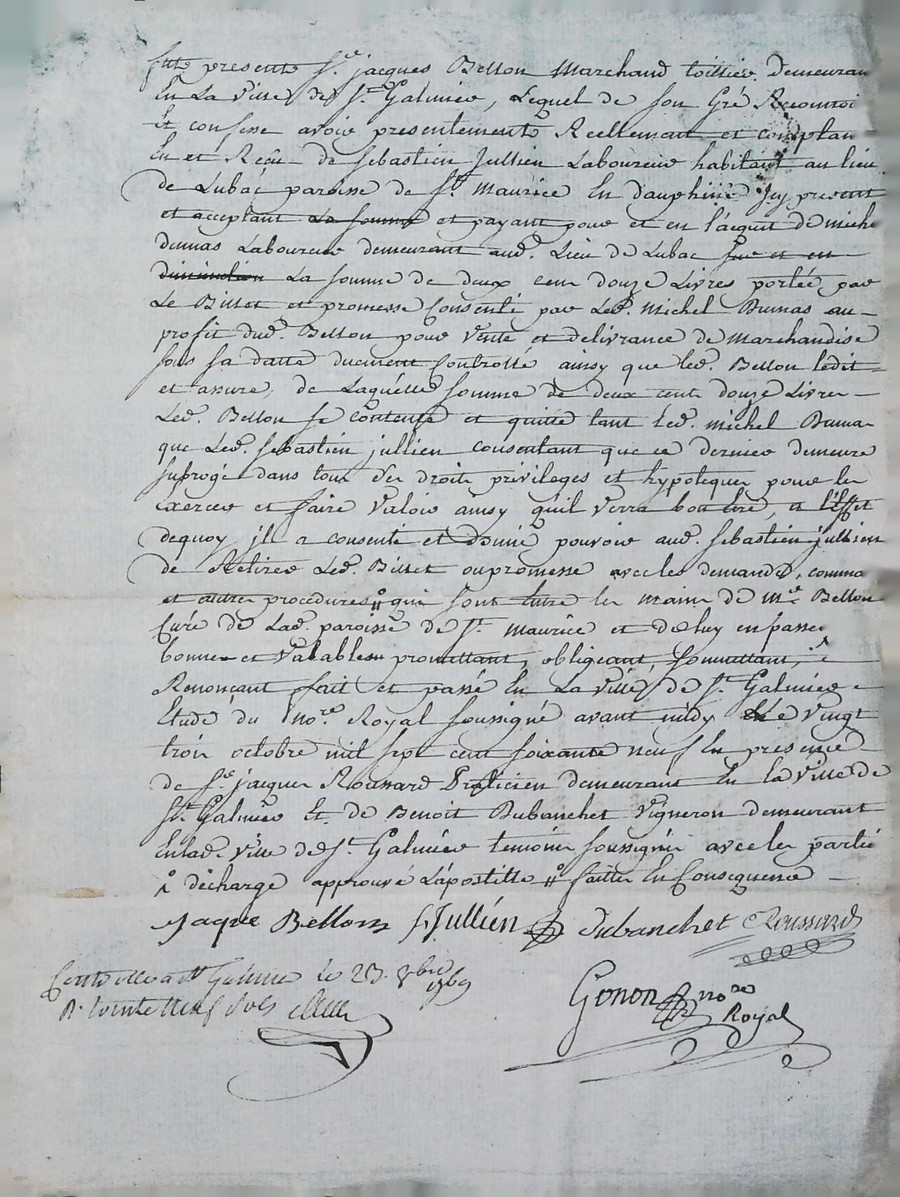 fut present Sr. jacques Bellon Marchand toillier demeuran
En La ville de St. Galmier, Lequel de son Gré Reconnoi
Et confesse avoir presentement Reellement et comptan
Eu et Reçu de sebastien Jullien Laboureur habitant au lieu
de Lubac paroisse de St. Maurice En dauphiné Jcy present
et acceptant La somme et payant pour et en l'acquit de miche
dumas Laboureur demeurant aud. Lieu de Lubac sur et en
diminution La somme de deux cent douze Livres portée par
Le Billet et promesse Consenté par Led. Michel Dumas au
profit dud. Bellon pour Vente et delivrance de Marchandise
sous sa datte duement Controllé ainsy que led. Bellon ledit
et assure, de Laquelle somme de deux cent douze Livres
Led. Bellon se contente et quitte tant led. michel Duma
que Led. sebastien jullien consentant que ce dernier demeure
subrogé dans tous ses droits privileges et hypoteques pour les
exercer et faire Valoir ainsy qu'il Verra bon être, a l'Effet
dequoy jl a consenti et donné pouvoir aud. sebastien jullien
de Retirer Led. Billet ou promesse avec les demande, comma
et autres procedures # qui sont entre les mains de Mre. Bellon
Curé de Lad. paroisse de St. Maurice et de luy en passer
bonne et Valable promettant, obligeant, soumettant,
Renonçant fait et passé En La Ville de St. Galmier
Etude du nore. Royal soussigné avant midy Le Vingt
trois octobre mil sept cent soixante neuf En presence
de Sr. jacques Roussard Praticien demeurant En la Ville de
St. Galmier Et de Benoit Dubanchet Vigneron demeurant
Enlad. Ville de St. Galmier temoins soussignés avec les partie
décharge approuvé L'apostille # faitte En Consequence
Jaque Bellon S. Jullien Dubanchet Roussard
Controllé a St Galmier le 23. 8bre 1769
R. vingt neuf sols
Gonon nore
Royal